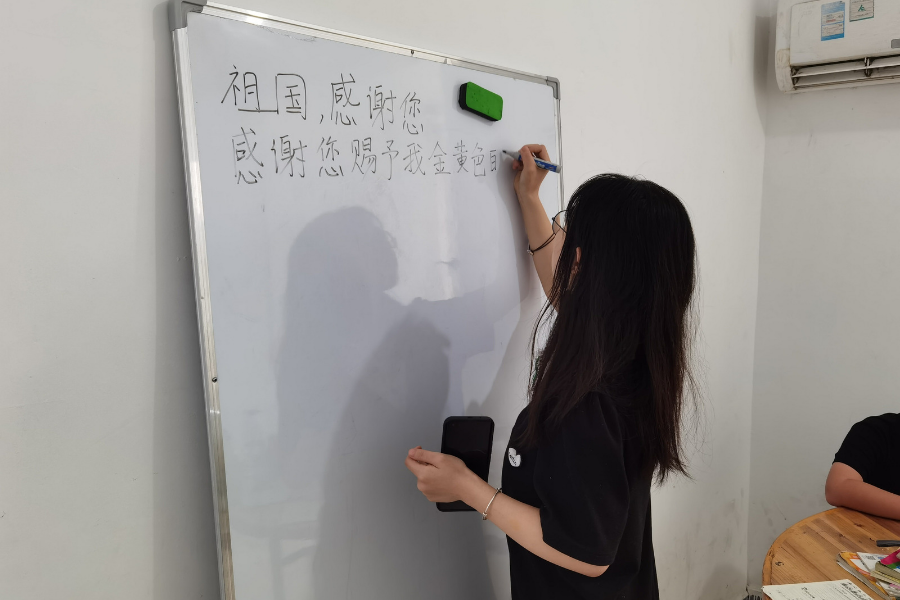 祖国,感谢您
感谢您赐予我金黄色